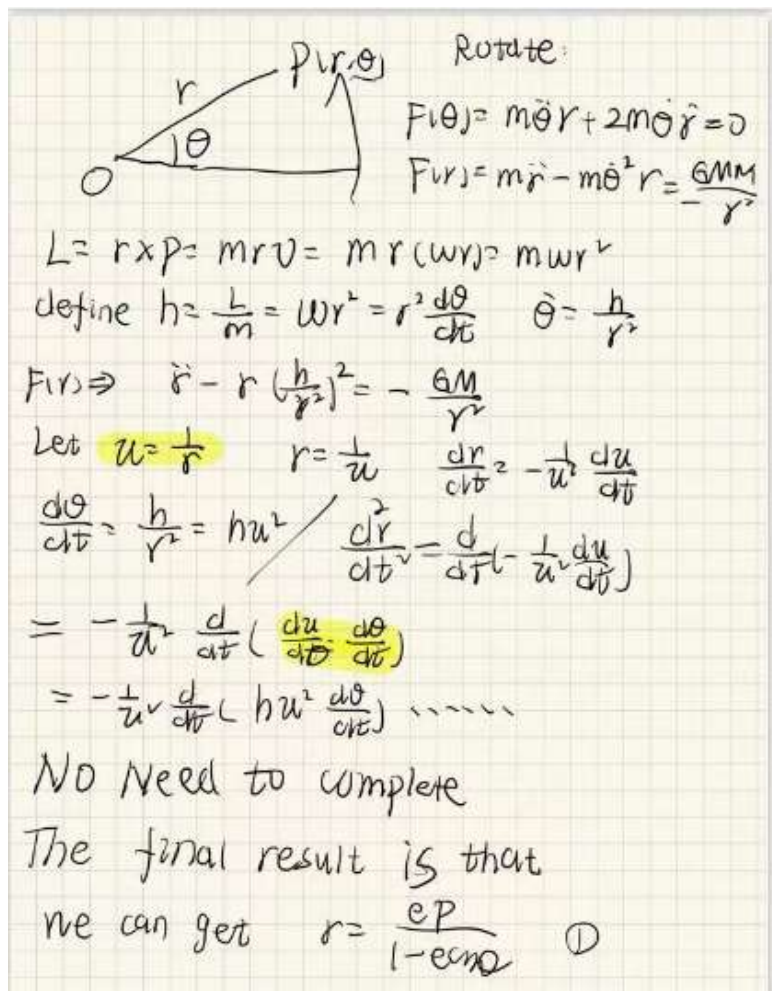 Rotate:
P(r,θ)
r
θ
O
F(θ)= mθ̈r + 2mθ̇ṙ = 0
F(r)= mr̈ - mθ̇²r = -GMm/r²
L = r×p = mrv = mr(wr) = mwr²
define h = L/m = wr² = r² dθ/dt θ̇ = h/r²
F(r) ⇒ r̈ - r (h/r²)² = - GM/r²
Let u = 1/r r = 1/u dr/dt = -1/u² du/dt
dθ/dt = h/r² = hu² / d²r/dt² = d/dt(-1/u² du/dt)
= -1/u² d/dt ( du/dθ · dθ/dt )
= -1/u² d/dt ( hu² dθ/dt ) ......
NO Need to complete
The final result is that
we can get r = ep/(1-ecosθ) ①